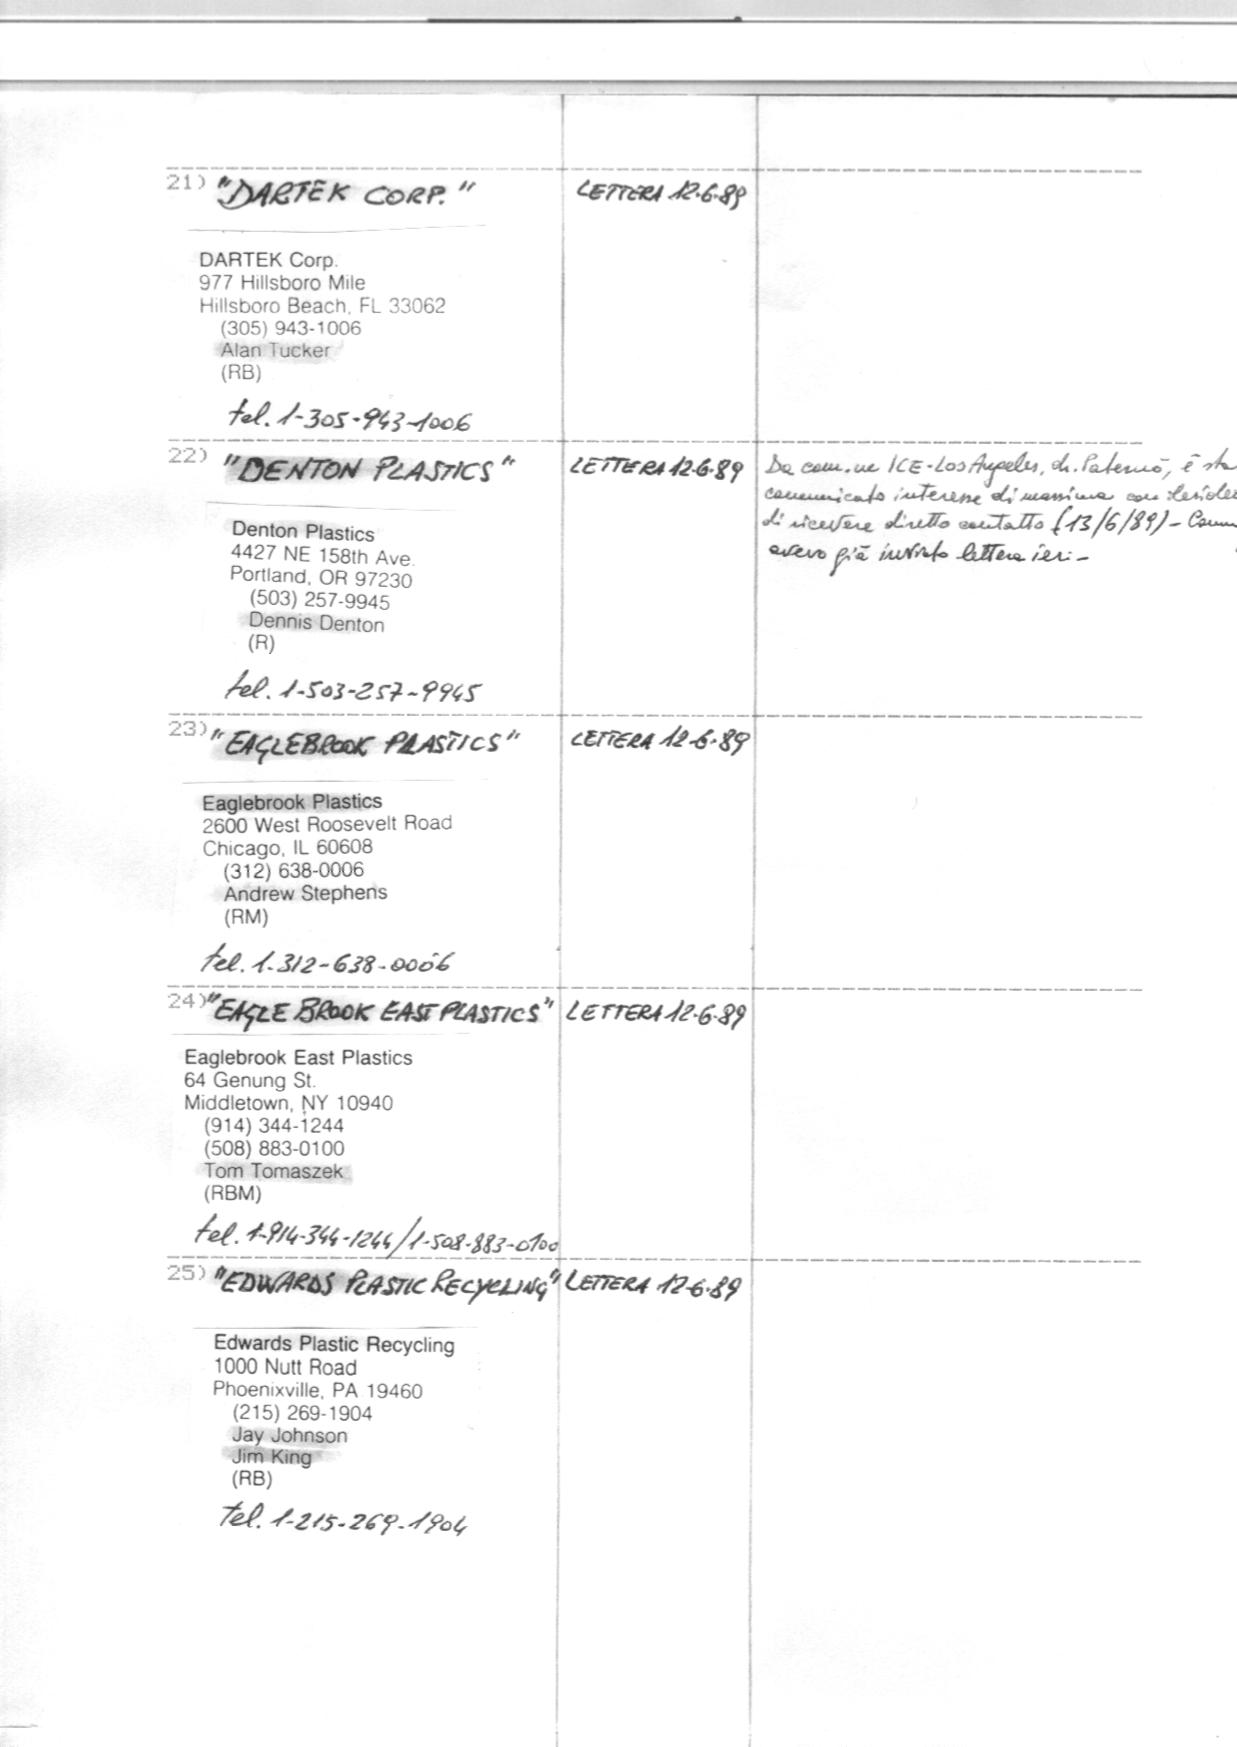 21) "DARTEK CORP." LETTERA 12-6-89
DARTEK Corp.
977 Hillsboro Mile
Hillsboro Beach, FL 33062
(305) 943-1006
Alan Tucker
(RB)
tel. 1-305-943-1006
22) "DENTON PLASTICS" LETTERA 12-6-89
Da com.ne ICE-Los Angeles, dr. Paternò, è sta
comunicato interesse di massima con
di ricevere diretto contatto (13/6/89) -
avevo già inviato lettera ieri -
Denton Plastics
4427 NE 158th Ave.
Portland, OR 97230
(503) 257-9945
Dennis Denton
(R)
tel. 1-503-257-9945
23) "EAGLEBROOK PLASTICS" LETTERA 12-6-89
Eaglebrook Plastics
2600 West Roosevelt Road
Chicago, IL 60608
(312) 638-0006
Andrew Stephens
(RM)
tel. 1-312-638-0006
24) "EAGLE BROOK EAST PLASTICS" LETTERA 12-6-89
Eaglebrook East Plastics
64 Genung St.
Middletown, NY 10940
(914) 344-1244
(508) 883-0100
Tom Tomaszek
(RBM)
tel. 1-914-344-1244/1-508-883-0100
25) "EDWARDS PLASTIC RECYCLING" LETTERA 12-6-89
Edwards Plastic Recycling
1000 Nutt Road
Phoenixville, PA 19460
(215) 269-1904
Jay Johnson
Jim King
(RB)
tel. 1-215-269-1904